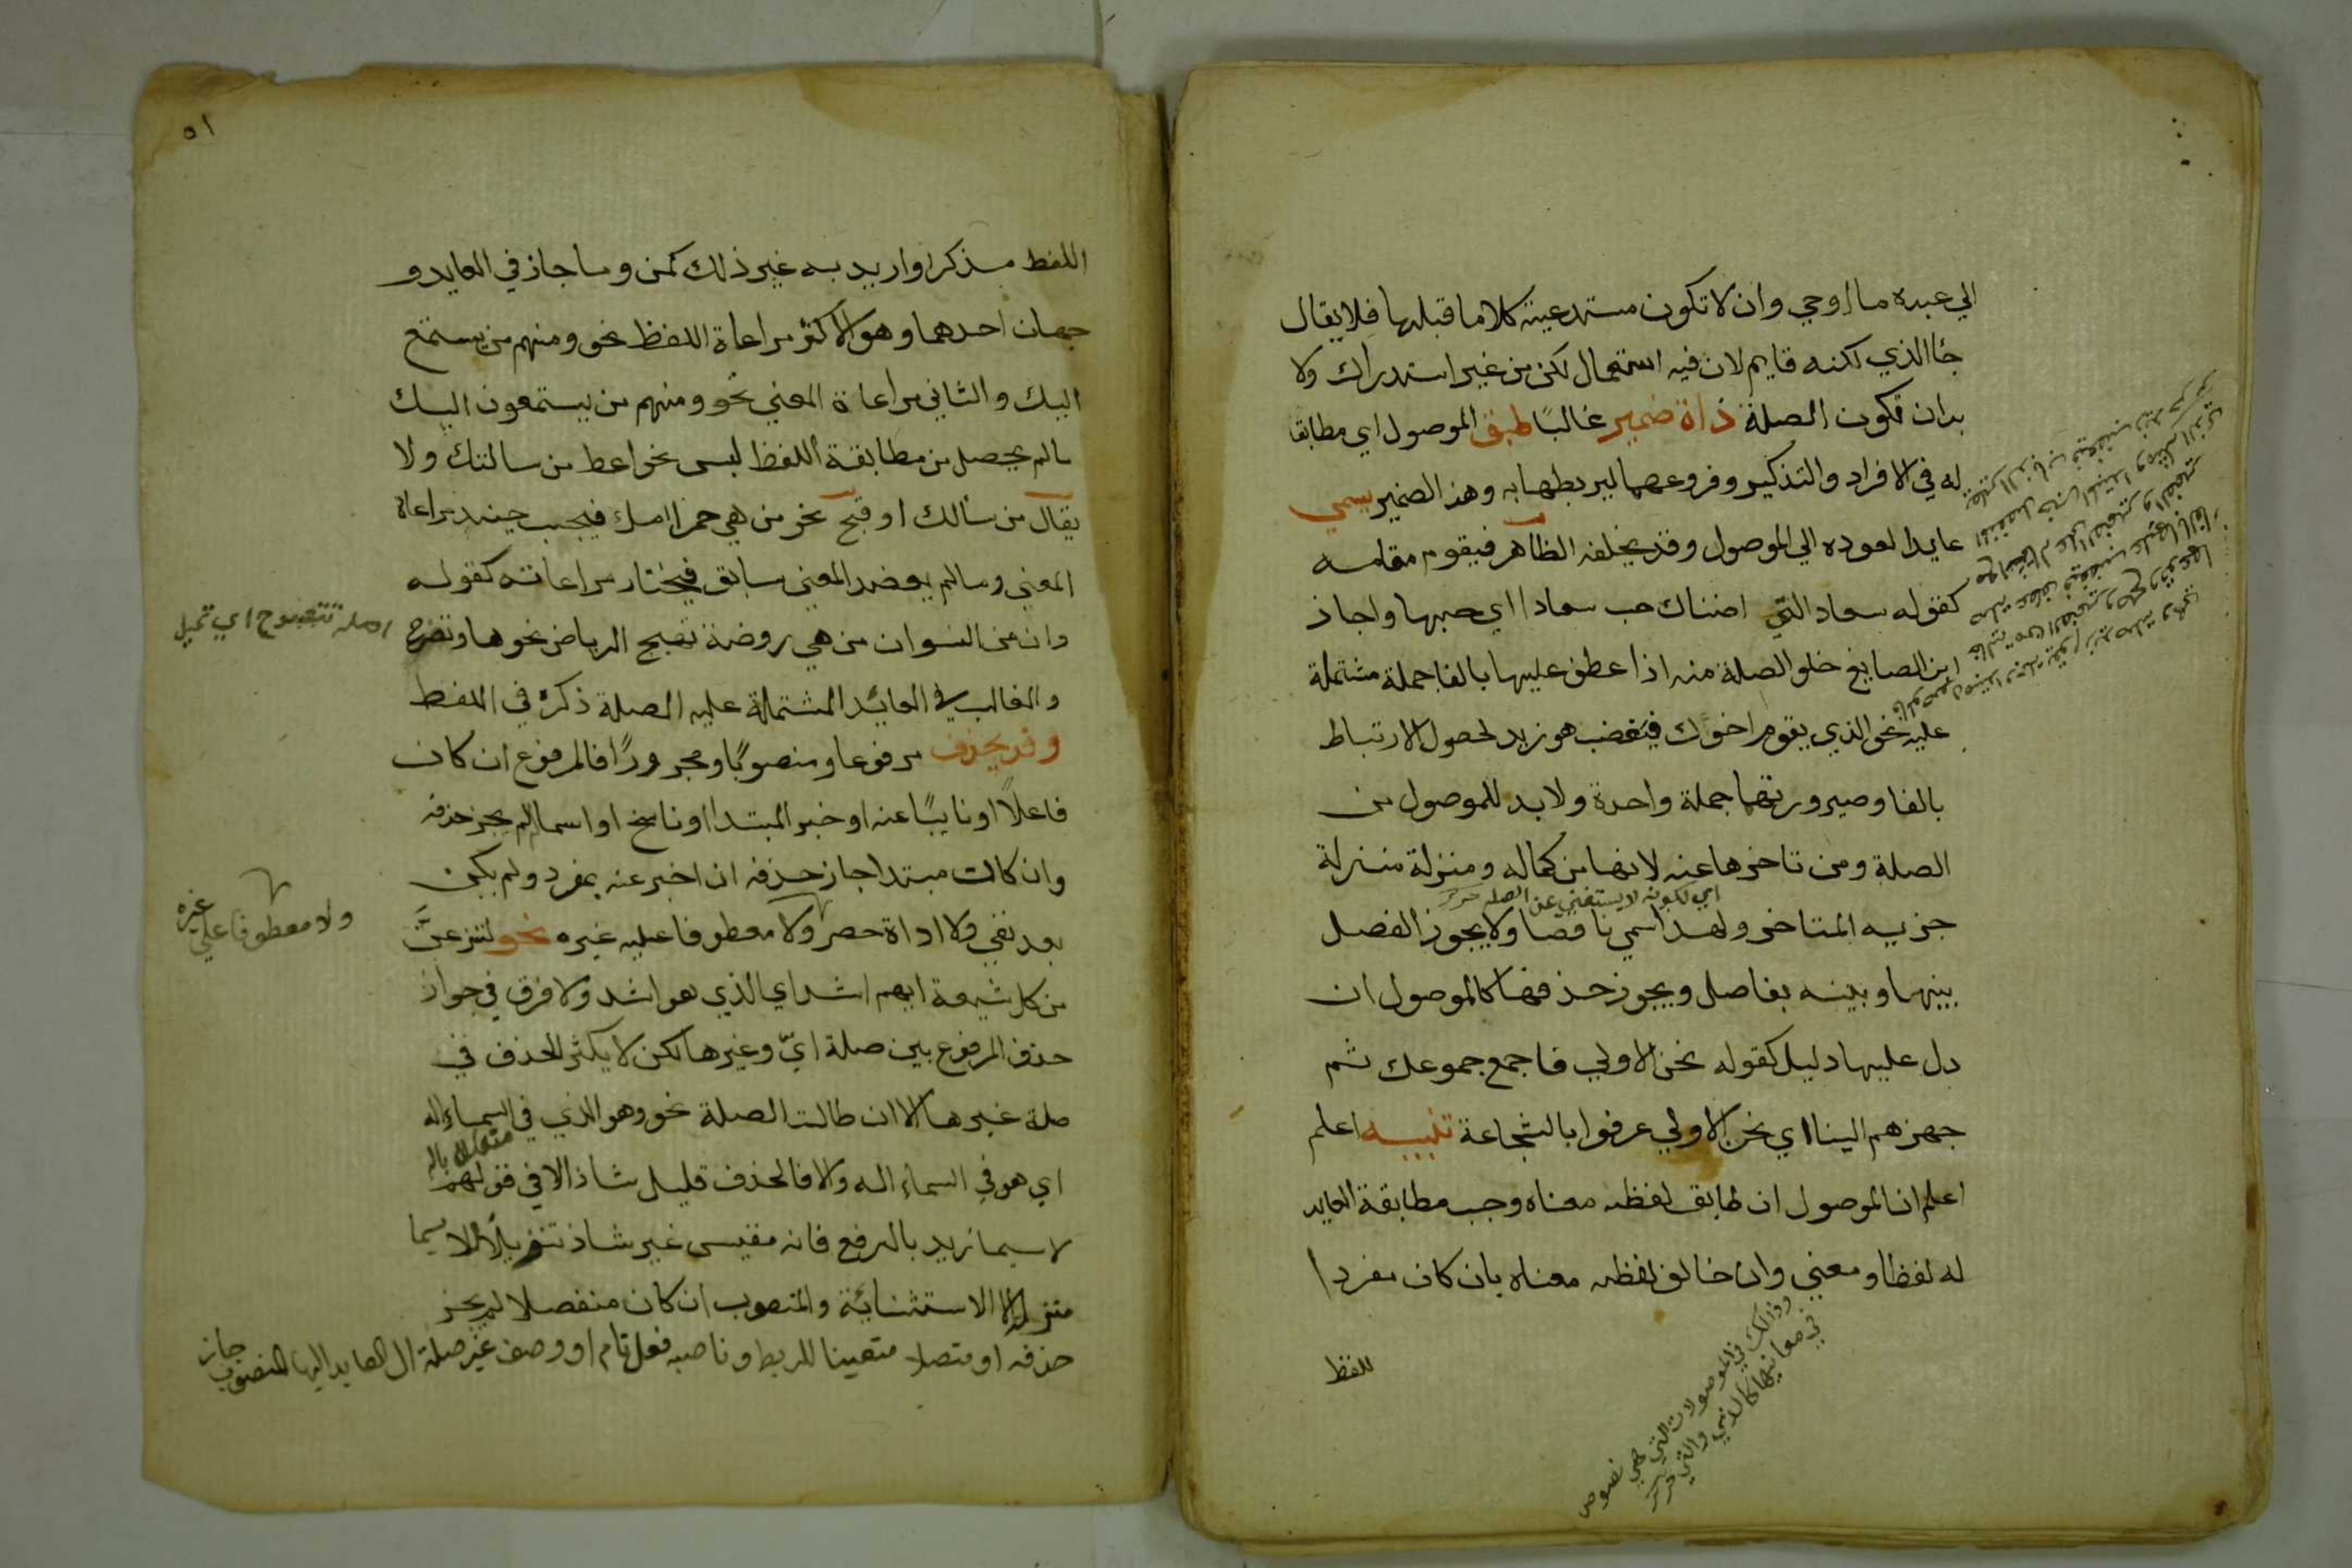 الي عبده ما اوحي وان لا تكون مستدعية كلاما قبلها فلا يقال
جأ الذي لكنه قايم لان فيه استعمال لكن من غير استدراك ولا
بدان تكون الصلة ذاة ضمير غالبًا طبق الموصول اي مطابقا
له في الافراد والتذكير وفروعهما ليربطها به وهذا الضمير يسمي
عايدا لعوده الي الموصول وقد يخلفه الظاهر فيقوم مقامه
كقوله سعاد التي اضناك حب سعادا اي حبها واجاز
ابن الصايغ خلو الصلة منه اذا عطف عليها بالفا جملة مشتملة
عليه نحو الذي يقوم اخوك فيغضب هو زيد لحصول الارتباط
بالفا وصيرورتهما جملة واحدة ولا بد للموصول من
الصلة ومن تاخرها عنه لانها من كماله ومنزلة منزلة
اي لكونه لا يستغني عن الصله
جزيه المتاخر ولهذا سمي ناقصا ولا يجوز الفصل
بينها وبينه بفاصل ويجوز حذفها كالموصول ان
دل عليها دليل كقوله نحن الاولي فاجمع جموعك ثم
جهزهم الينا اي نحن الاولي عرفوا بالشجاعة تنبيه اعلم
اعلم ان الموصول ان طابق لفظه معناه وجب مطابقة العايد
له لفظا ومعني وان خالف لفظه معناه بان كان مفردا
وذالك في الموصولات التي هي نصوص
في معانيها كالذي والتي
للفظ
٥١
اللفظ مذكرا واريد به غير ذلك كمن وما جاز في العايد و
جهان احدهما وهو الاكثر مراعاة اللفظ نحو ومنهم من يستمع
اليك والثاني مراعاة المعني نحو ومنهم من يستمعون اليك
مالم يحصل من مطابقة اللفظ لبس نحو اعط من سالتك ولا
يقال من سالك او قبح نحو من هي حمرا امك فيجب حينئد مراعاة
المعني ومالم يعضد المعني سابق فيختار مراعاته كقوله
وان من النسوان من هي روضة تهيج الرياض نحوها وتضوح
اصله تتضوح اي تميل
والغالب في العائد المشتملة عليه الصلة ذكره في اللفظ
وقد يحذف مرفوعا ومنصوبًا ومجرورًا فالمرفوع ان كان
فاعلاً او نايبًا عنه او خبر المبتدا او ناسخ او اسما له لم يجز حذفه
وان كان مبتدا جاز حذفه ان اخبر عنه بمفرد ولم يكن
بعد نفي ولا اداة حصر ولا معطوفا عليه غيره نحو لننزعنَّ
ولا معطوفا علي غيره
من كل شيعة ايهم اشد اي الذي هو اشد ولا فرق في جواز
حذف المرفوع بين صلة ايّ وغيرها لكن لا يكثر الحذف في
صلة غيرها الا ان طالت الصلة نحو وهو الذي في السماء اله
متعلق باله
اي هو في السماء اله والا فالحذف قليل شاذ الا في قولهم
لا سيما زيد بالرفع فانه مقيس غير شاذ تنزيلاً للا سيما
منزلة الا الاستثنائة والمنصوب ان كان منفصلا لم يجز
حذفه او متصلا متعينا للربط وناصبه فعل تام او وصف غير صلة ال العايد اليها المنصوب جاز